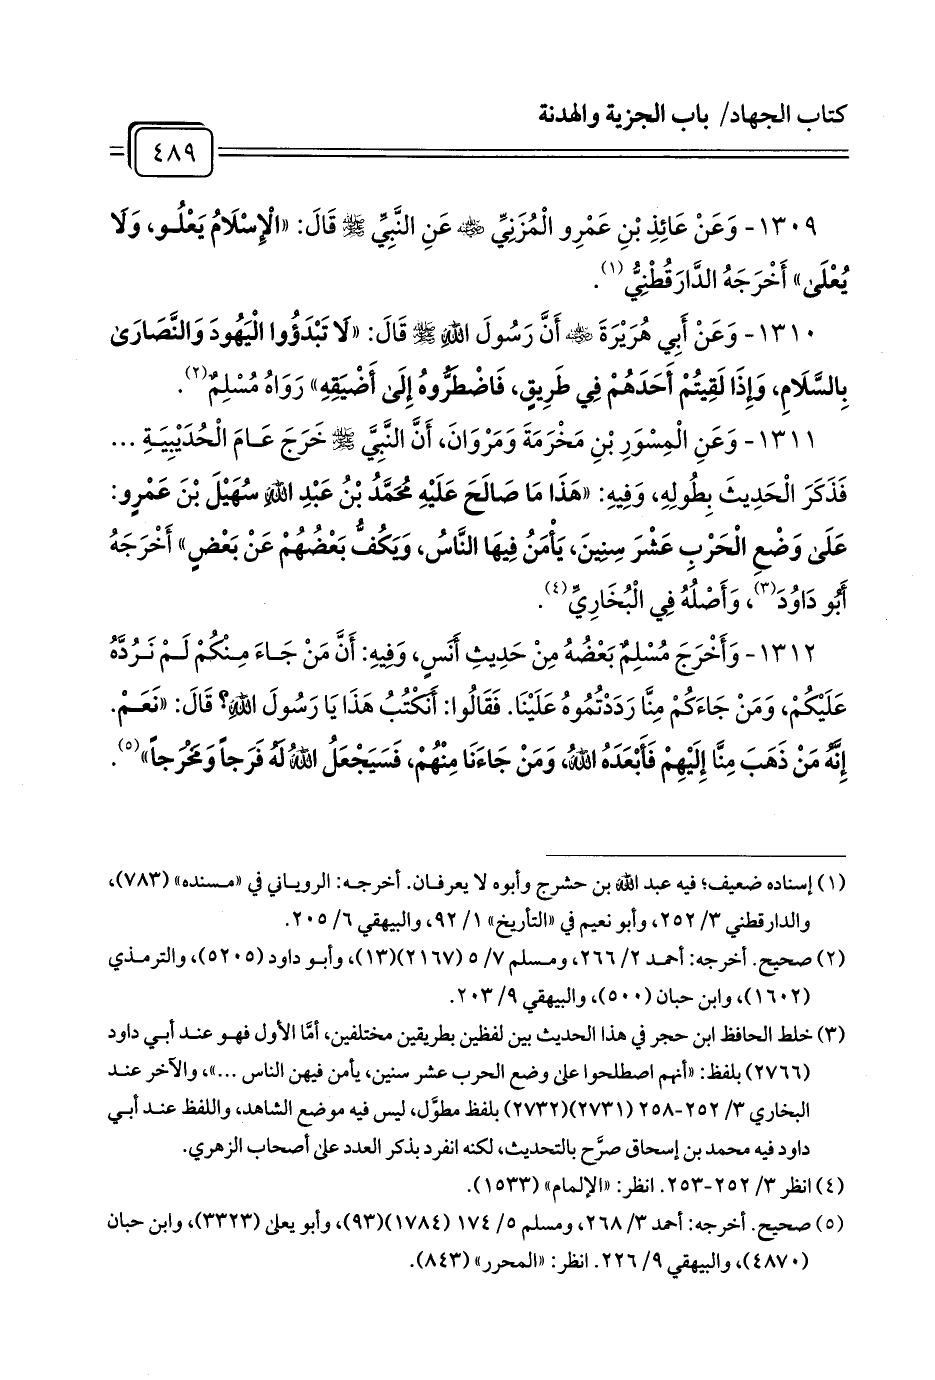 كتاب الجهاد/ باب الجزية والهدنة
٤٨٩
١٣٠٩- وَعَنْ عَائِذِ بْنِ عَمْرِو الْمُزَنِيِّ ﷺ عَنِ النَّبِيِّ ﷺ قَالَ: «الْإِسْلَامُ يَعْلُو، وَلَا
يُعْلَى» أَخْرَجَهُ الدَّارَقُطْنِيُّ(١).
١٣١٠- وَعَنْ أَبِي هُرَيْرَةَ ﷺ أَنَّ رَسُولَ اللهِ ﷺ قَالَ: «لَا تَبْدَؤُوا الْيَهُودَ وَالنَّصَارَى
بِالسَّلَامِ، وَإِذَا لَقِيتُمْ أَحَدَهُمْ فِي طَرِيقٍ، فَاضْطَرُّوهُ إِلَى أَضْيَقِهِ» رَوَاهُ مُسْلِمٌ(٢).
١٣١١- وَعَنِ الْمِسْوَرِ بْنِ مَخْرَمَةَ وَمَرْوَانَ، أَنَّ النَّبِيَّ ﷺ خَرَجَ عَامَ الْحُدَيْبِيَةِ ...
فَذَكَرَ الْحَدِيثَ بِطُولِهِ، وَفِيهِ: «هَذَا مَا صَالَحَ عَلَيْهِ مُحَمَّدُ بْنُ عَبْدِ اللهِ سُهَيْلَ بْنَ عَمْرٍو:
عَلَى وَضْعِ الْحَرْبِ عَشْرَ سِنِينَ، يَأْمَنُ فِيهَا النَّاسُ، وَيَكُفُّ بَعْضُهُمْ عَنْ بَعْضٍ» أَخْرَجَهُ
أَبُو دَاوُدَ(٣)، وَأَصْلُهُ فِي الْبُخَارِيِّ(٤).
١٣١٢- وَأَخْرَجَ مُسْلِمٌ بَعْضُهُ مِنْ حَدِيثِ أَنَسٍ، وَفِيهِ: أَنَّ مَنْ جَاءَ مِنْكُمْ لَمْ نَرُدَّهُ
عَلَيْكُمْ، وَمَنْ جَاءَكُمْ مِنَّا رَدَدْتُمُوهُ عَلَيْنَا. فَقَالُوا: أَنَكْتُبُ هَذَا يَا رَسُولَ اللهِ؟ قَالَ: «نَعَمْ.
إِنَّهُ مَنْ ذَهَبَ مِنَّا إِلَيْهِمْ فَأَبْعَدَهُ اللهُ، وَمَنْ جَاءَنَا مِنْهُمْ، فَسَيَجْعَلُ اللهُ لَهُ فَرَجاً وَمَخْرَجاً»(٥).
(١) إسناده ضعيف؛ فيه عبد الله بن حشرج وأبوه لا يعرفان. أخرجه: الروياني في «مسنده» (٧٨٣)،
والدارقطني ٣/ ٢٥٢، وأبو نعيم في «التأريخ» ١/ ٩٢، والبيهقي ٦/ ٢٠٥.
(٢) صحيح. أخرجه: أحمد ٢/ ٢٦٦، ومسلم ٧/ ٥ (٢١٦٧)(١٣)، وأبو داود (٥٢٠٥)، والترمذي
(١٦٠٢)، وابن حبان (٥٠٠)، والبيهقي ٩/ ٢٠٣.
(٣) خلط الحافظ ابن حجر في هذا الحديث بين لفظين بطريقين مختلفين، أمَّا الأول فهو عند أبي داود
(٢٧٦٦) بلفظ: «أنهم اصطلحوا على وضع الحرب عشر سنين، يأمن فيهن الناس ...»، والآخر عند
البخاري ٣/ ٢٥٢-٢٥٨ (٢٧٣١)(٢٧٣٢) بلفظ مطوَّل، ليس فيه موضع الشاهد، واللفظ عند أبي
داود فيه محمد بن إسحاق صرَّح بالتحديث، لكنه انفرد بذكر العدد على أصحاب الزهري.
(٤) انظر ٣/ ٢٥٢-٢٥٣. انظر: «الإلمام» (١٥٣٣).
(٥) صحيح. أخرجه: أحمد ٣/ ٢٦٨، ومسلم ٥/ ١٧٤ (١٧٨٤)(٩٣)، وأبو يعلى (٣٣٢٣)، وابن حبان
(٤٨٧٠)، والبيهقي ٩/ ٢٢٦. انظر: «المحرر» (٨٤٣).